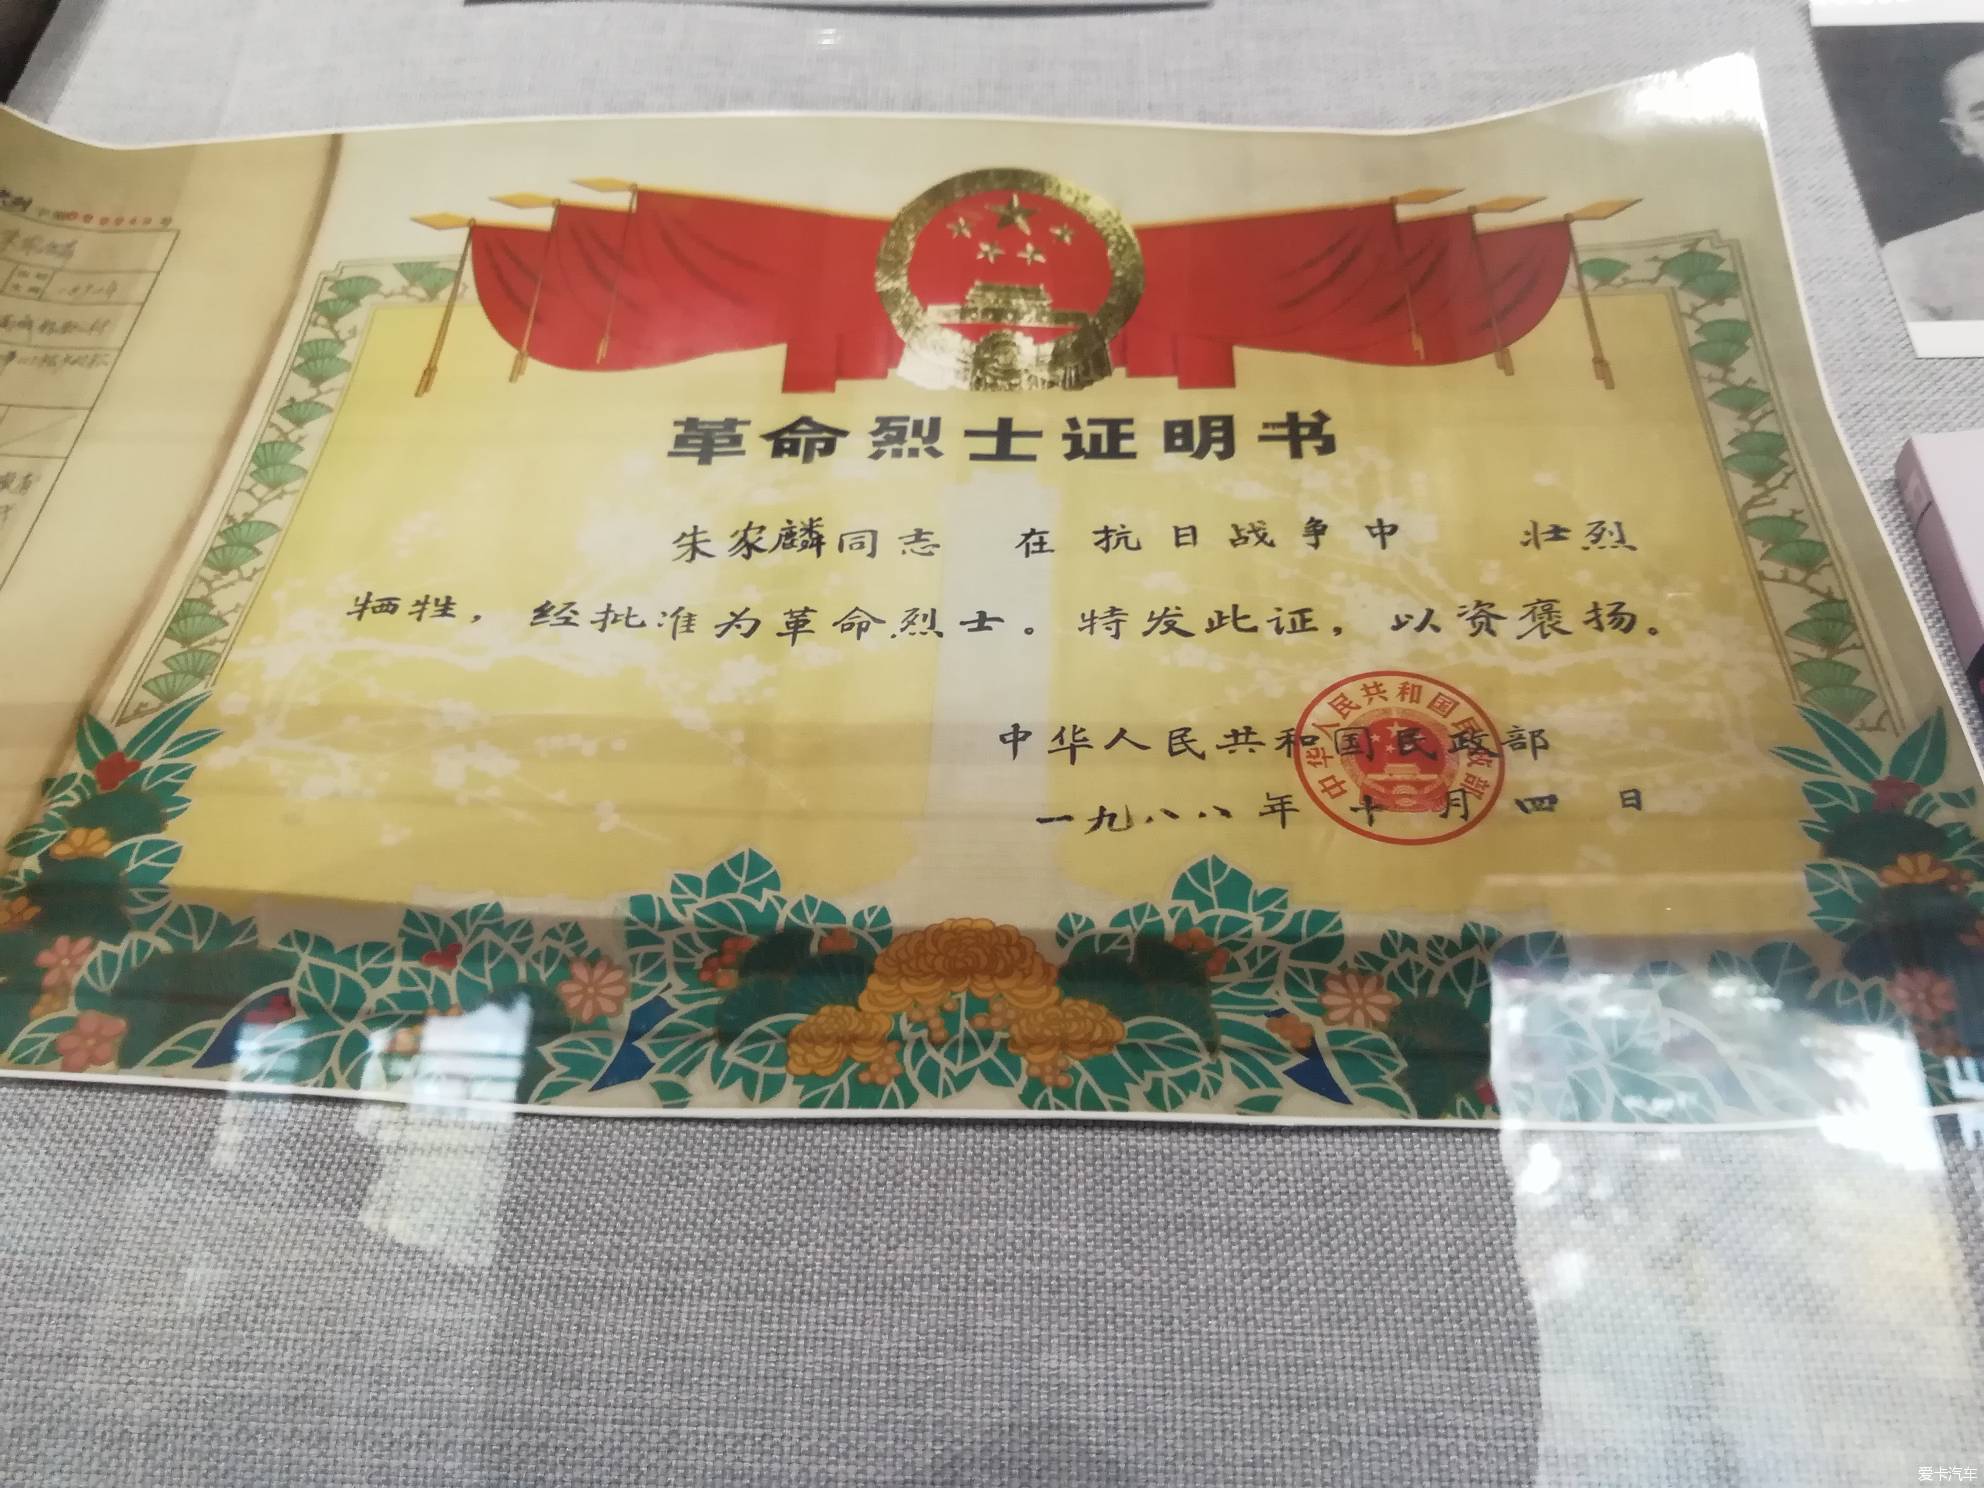 革命烈士证明书
朱家麟同志 在抗日战争中 壮烈
牺牲，经批准为革命烈士。特发此证，以资褒扬。
中华人民共和国民政部
中华人民共和国民政部
一九八八年 十 月 四 日
爱卡汽车